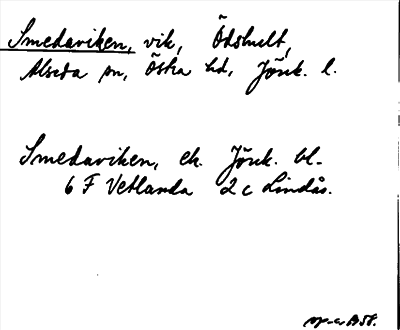 Smedaviken, vik, Ödshult,
Alseda sn, Östra hd, Jönk. l.
Smedaviken, ek. Jönk. bl.
6 F Vetlanda 2 c Lindås.